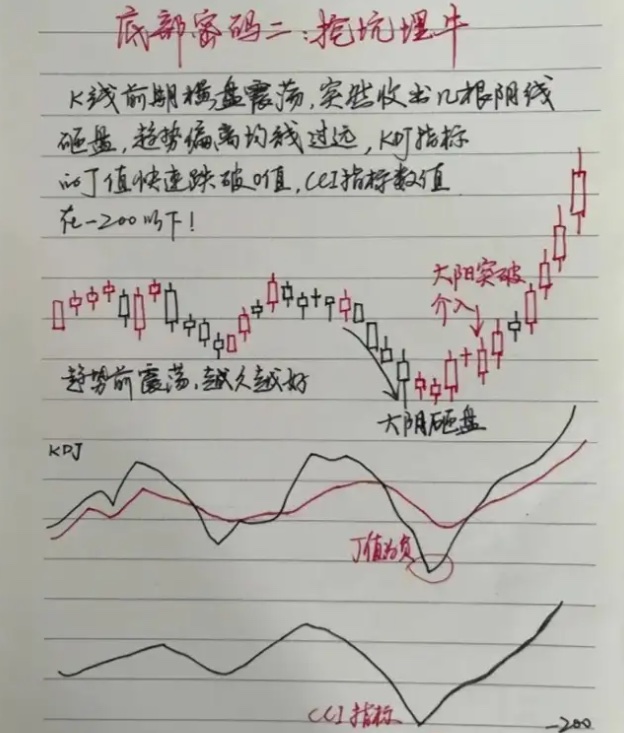 底部密码二:挖坑埋牛
K线前期横盘震荡,突然收出几根阴线
砸盘,趋势偏离均线过远,KDJ指标
的J值快速跌破0值,CCI指标数值
在-200以下!
大阳突破
介入
趋势前震荡,越久越好
大阴砸盘
KDJ
J值为负
CCI指标
-200